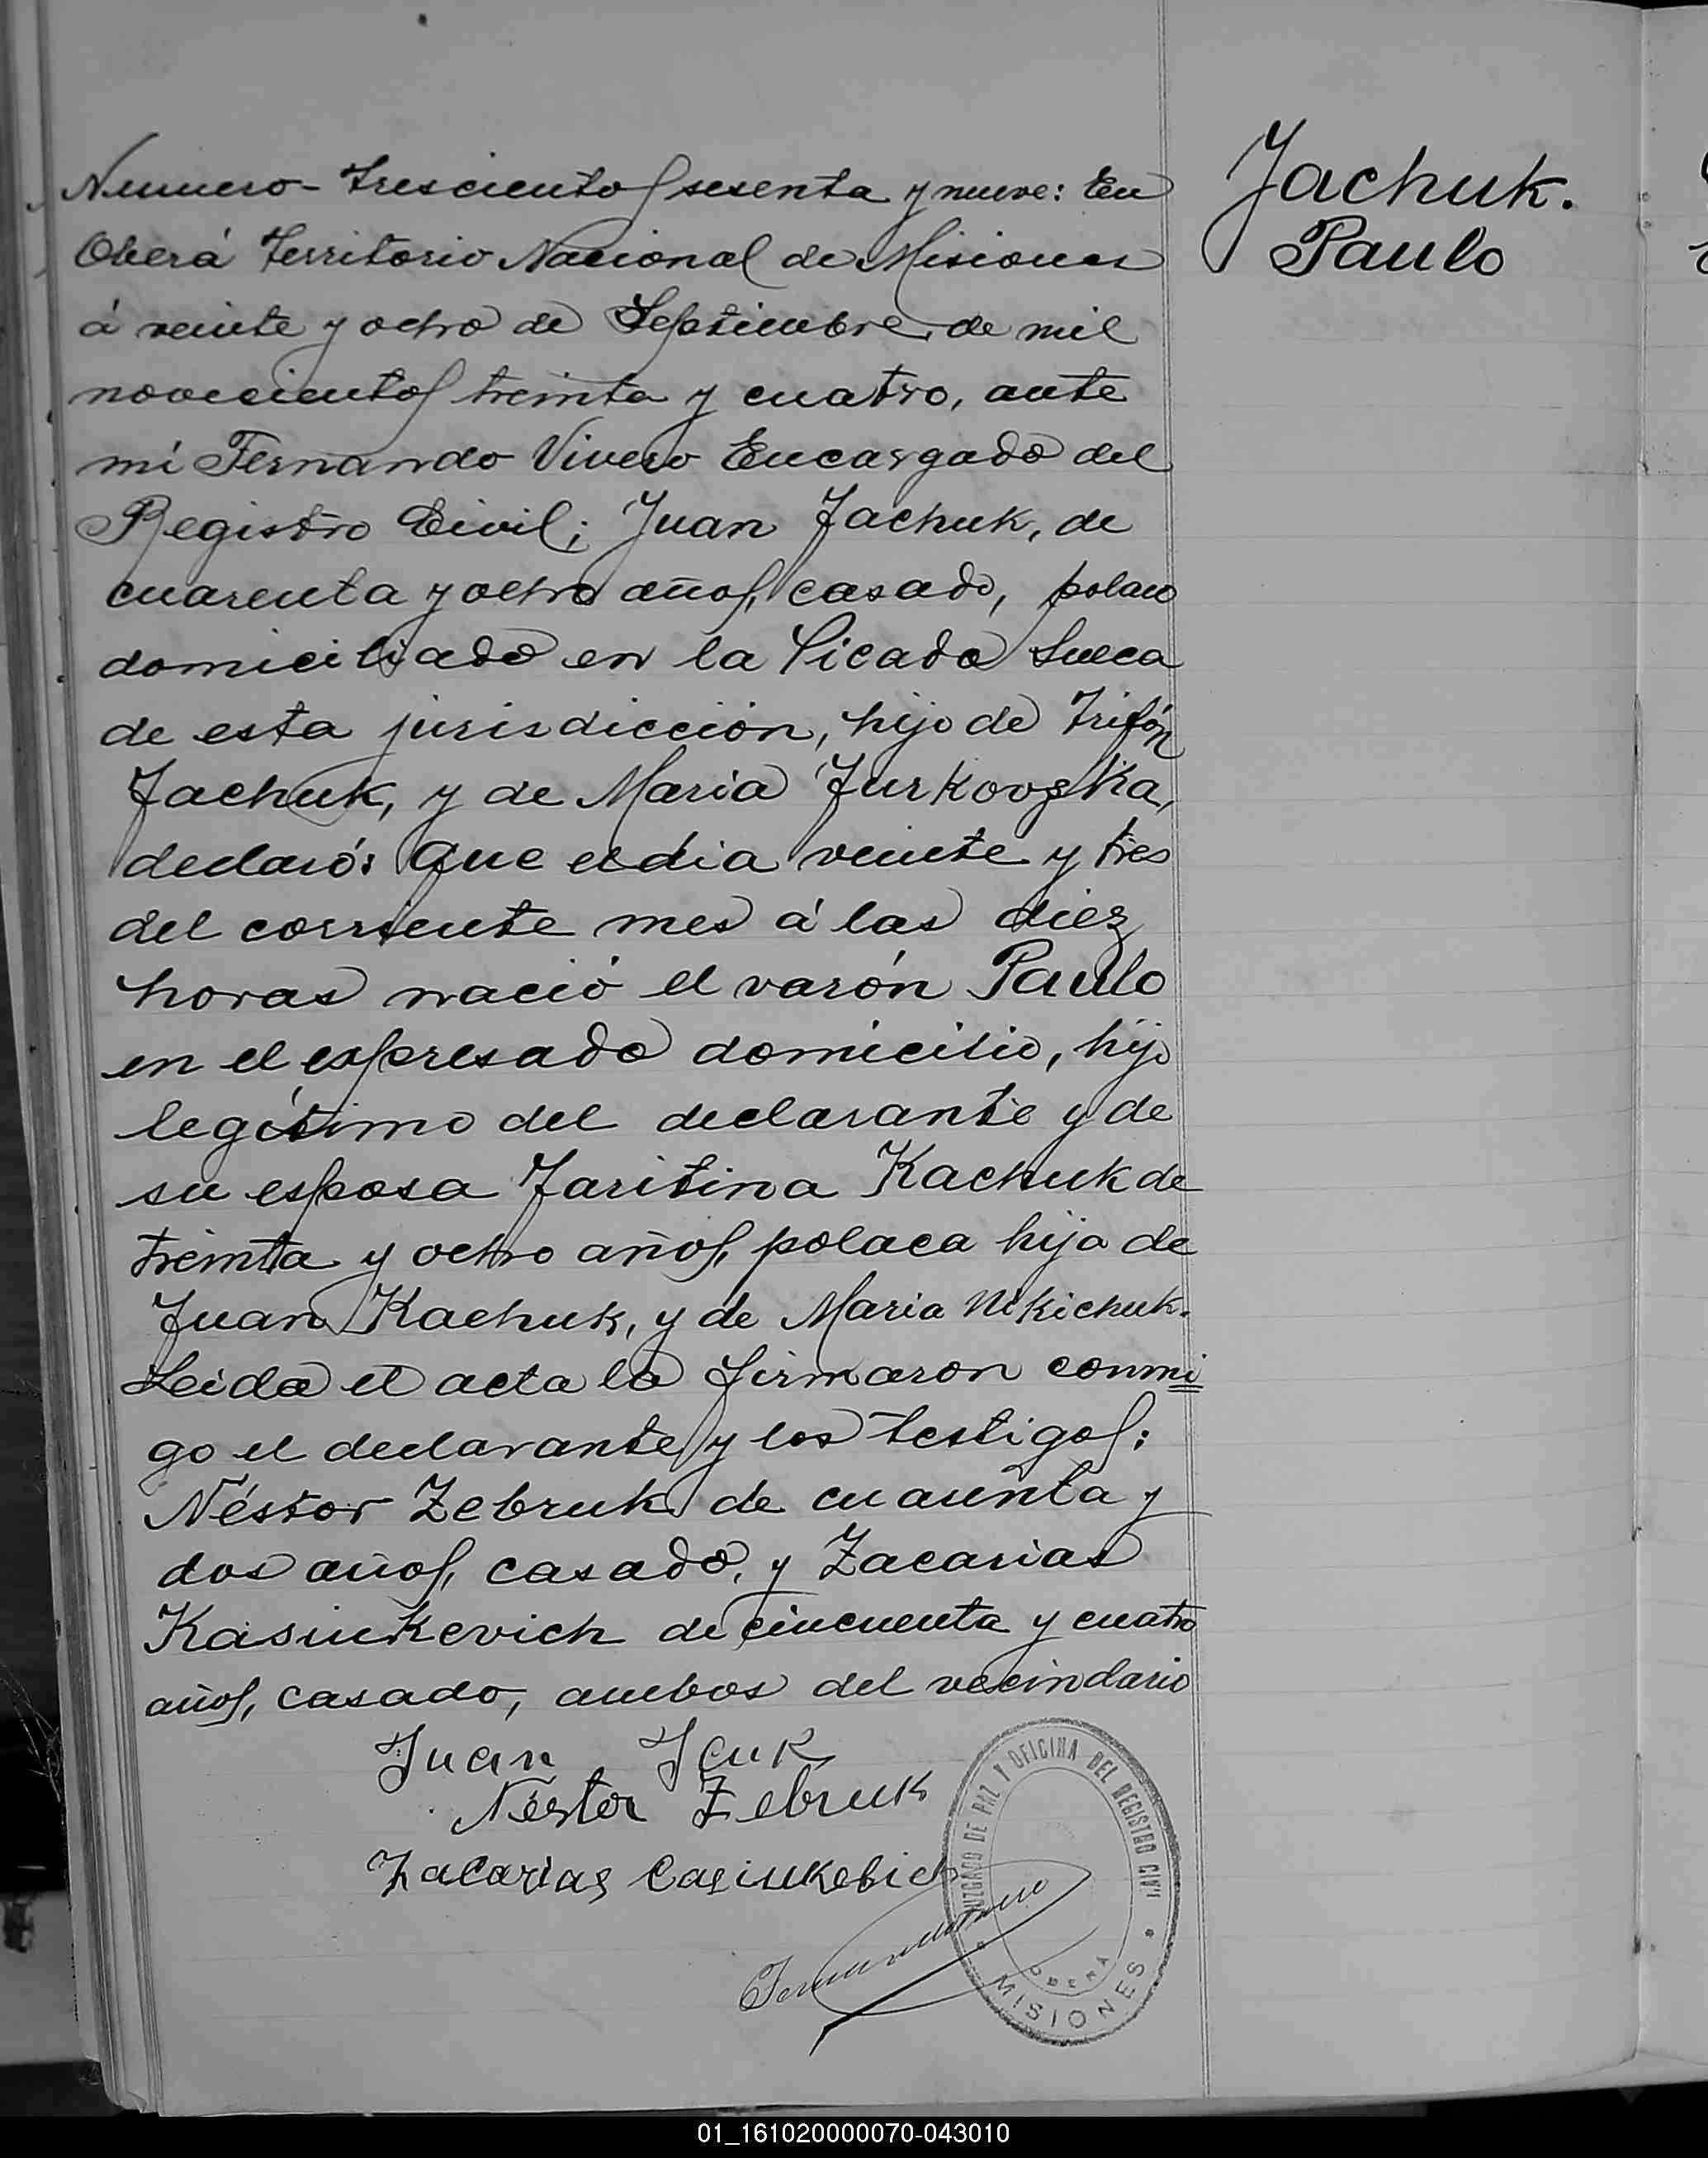 Jachuk.
Paulo
Numero - Trescientos sesenta y nueve: En
Oberá Territorio Nacional de Misiones
á veinte y ocho de Septiembre de mil
novecientos treinta y cuatro, ante
mi Fernando Vivero Encargado del
Registro Civil; Juan Jachuk, de
cuarenta y ocho años, casado, polaco
domiciliado en la Picada Sueca
de esta jurisdicción, hijo de Trifón
Jachuk, y de Maria Jurkovska,
declaró: Que el dia veinte y tres
del corriente mes á las diez
horas nació el varón Paulo
en el espresado domicilio, hijo
legítimo del declarante y de
su esposa Jaritina Kachuk de
treinta y ocho años, polaca hija de
Juan Kachuk, y de Maria Nikichuk.
Leida el acta la firmaron conmi
go el declarante y los testigos:
Néstor Zebruk de cuarenta y
dos años, casado, y Zacarias
Kasiukevich de cincuenta y cuatro
años, casado, ambos del vecindario
Juan Jcuk
Néstor Zebruk
Zacarias Casiukebich
JUZGADO DE PAZ Y OFICINA DEL REGISTRO CIVIL
OBERÁ
MISIONES
01_161020000070-043010